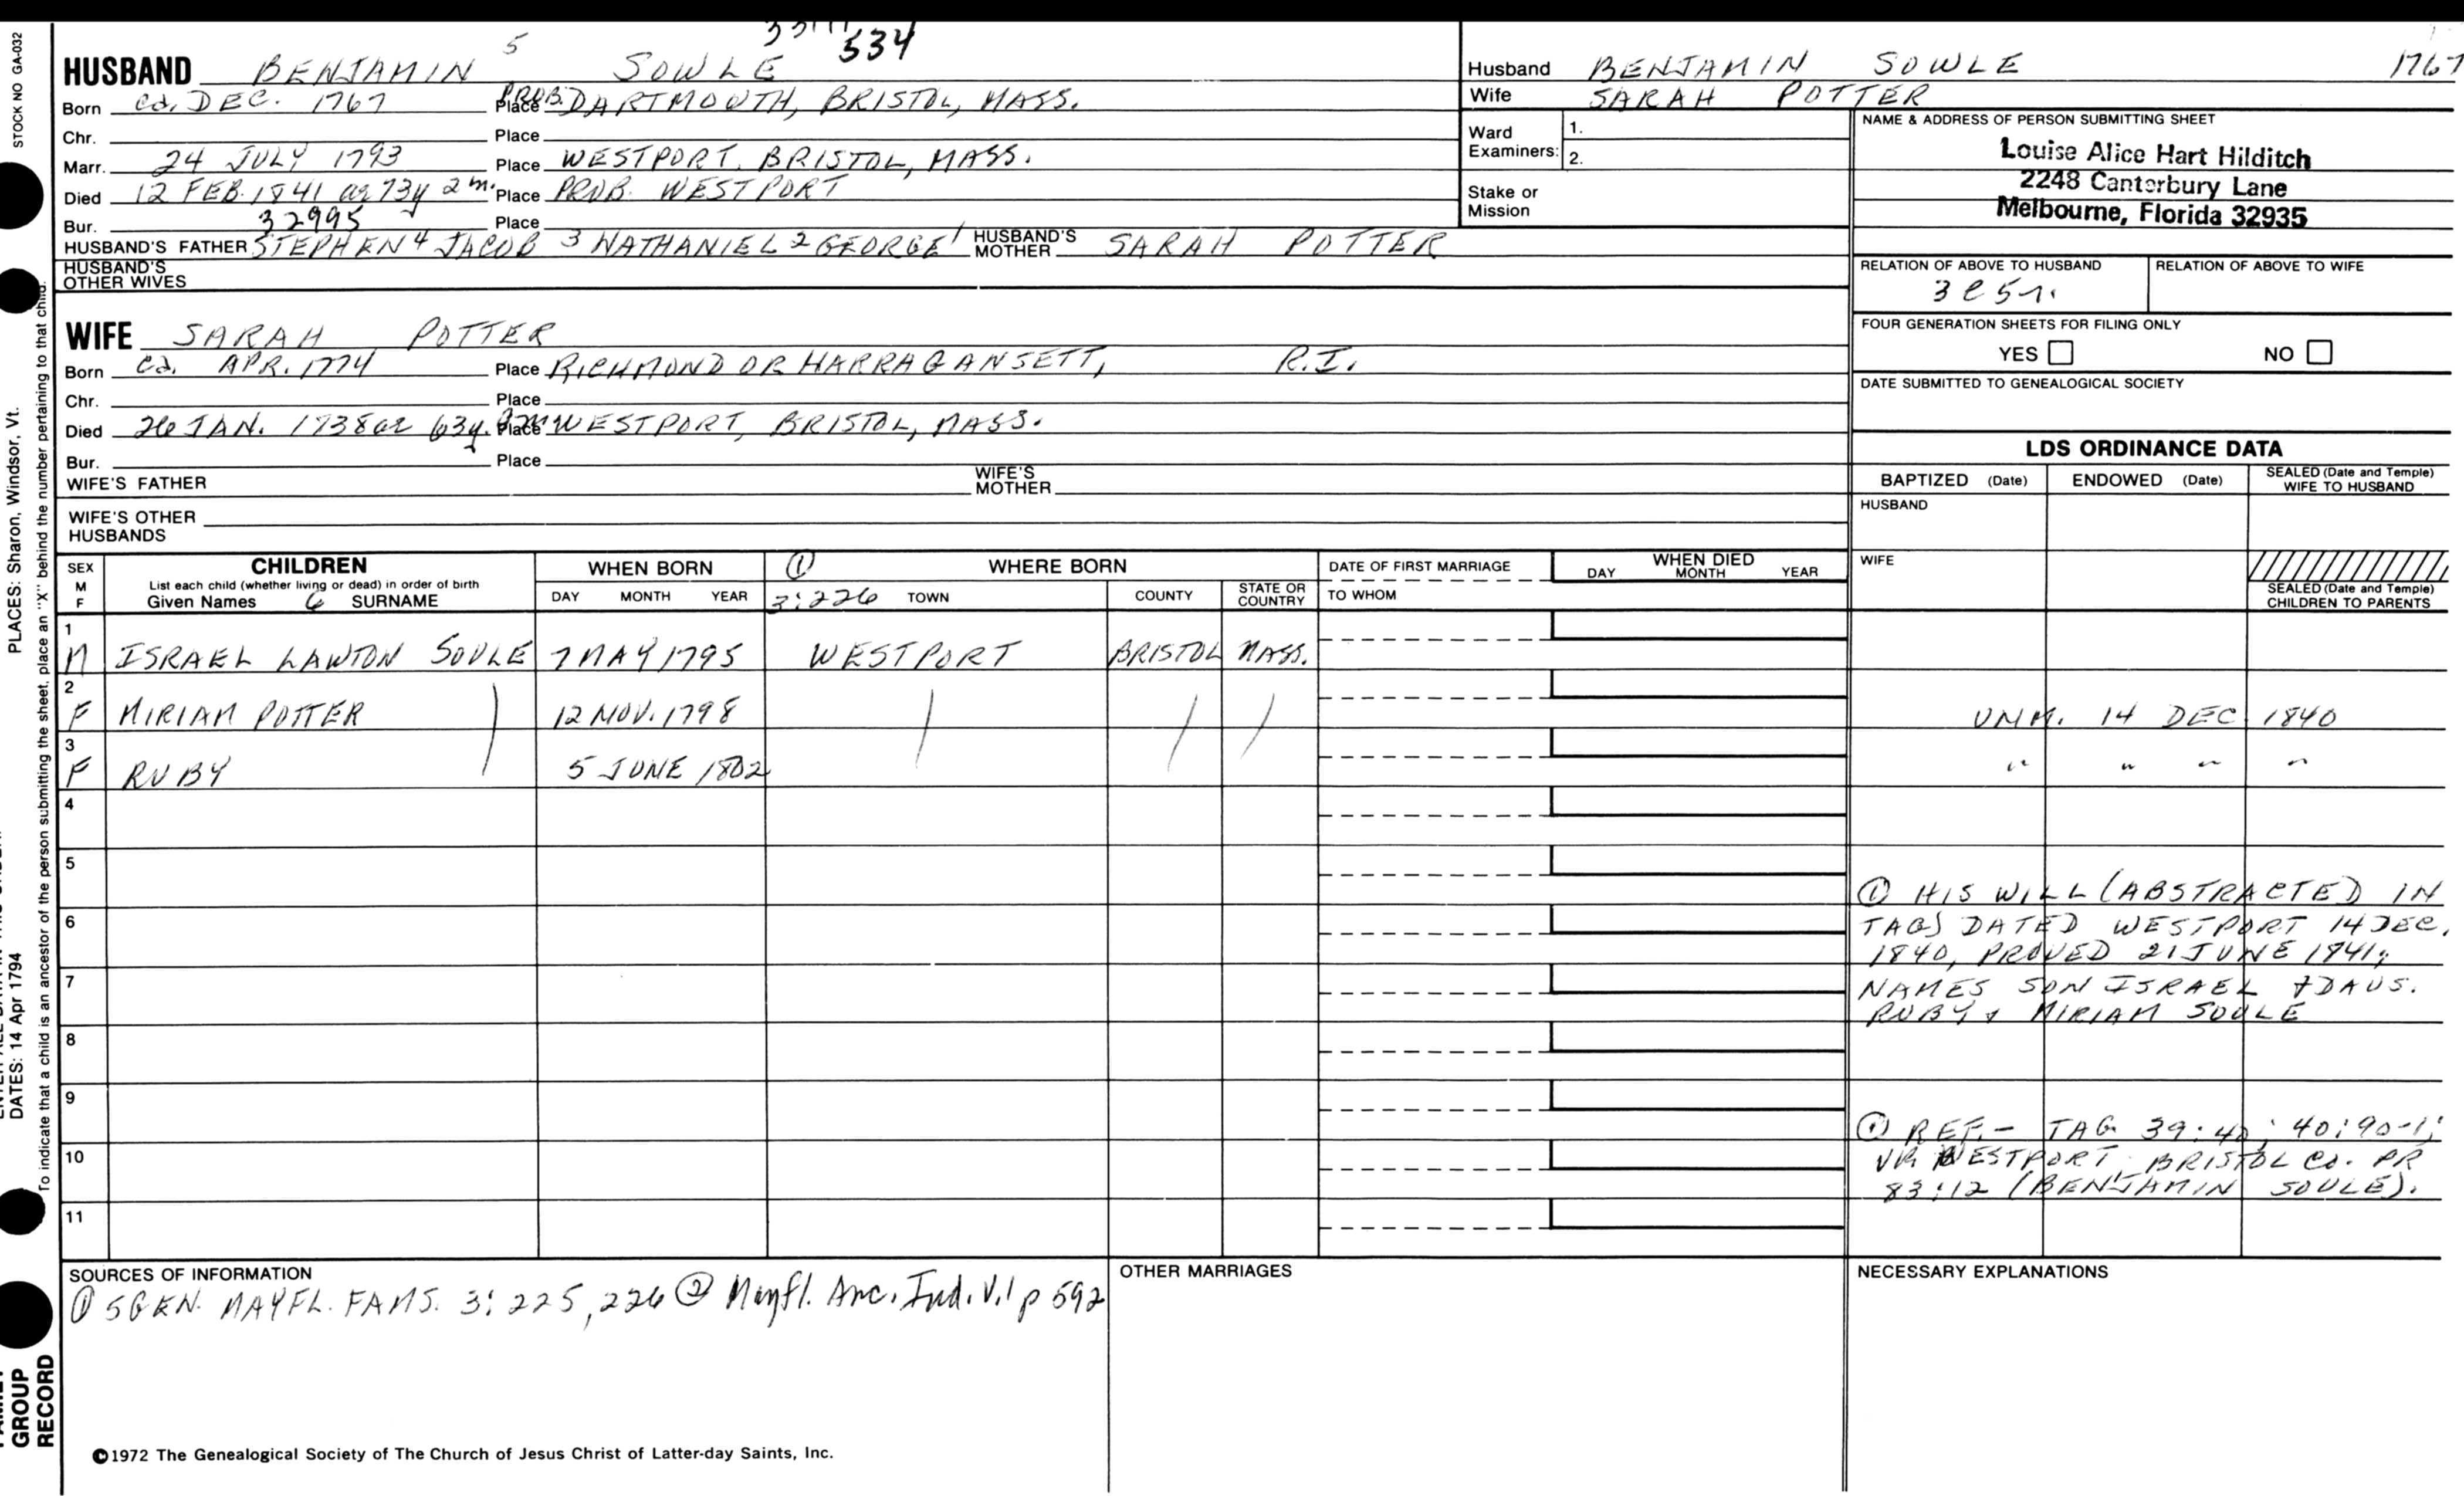 STOCK NO GA-032
PLACES: Sharon, Windsor, Vt.
DATES: 14 Apr 1794
To indicate that a child is an ancestor of the person submitting the sheet, place an "X" behind the number pertaining to that child.
GROUP
RECORD
534
HUSBAND BENJAMIN 5 SOWLE
Born ca. DEC. 1767 Place PROB. DARTMOUTH, BRISTOL, MASS.
Chr. Place
Marr. 24 JULY 1793 Place WESTPORT, BRISTOL, MASS.
Died 12 FEB. 1841 ae 73y 2m. Place PROB. WESTPORT
Bur. 32995 Place
HUSBAND'S FATHER STEPHEN 4 JACOB 3 NATHANIEL 2 GEORGE 1 HUSBAND'S MOTHER SARAH POTTER
HUSBAND'S OTHER WIVES
WIFE SARAH POTTER
Born ca. APR. 1774 Place RICHMOND OR HARRAGANSETT, R.I.
Chr. Place
Died 26 JAN. 1738 ae 63y. 9m Place WESTPORT, BRISTOL, MASS.
Bur. Place
WIFE'S FATHER WIFE'S MOTHER
WIFE'S OTHER HUSBANDS
Husband BENJAMIN SOWLE 1767
Wife SARAH POTTER
Ward Examiners: 1.
2.
Stake or Mission
NAME & ADDRESS OF PERSON SUBMITTING SHEET
Louise Alice Hart Hilditch
2248 Canterbury Lane
Melbourne, Florida 32935
RELATION OF ABOVE TO HUSBAND RELATION OF ABOVE TO WIFE
3 C 5 r.
FOUR GENERATION SHEETS FOR FILING ONLY
YES NO
DATE SUBMITTED TO GENEALOGICAL SOCIETY
LDS ORDINANCE DATA
BAPTIZED (Date) ENDOWED (Date) SEALED (Date and Temple) WIFE TO HUSBAND
HUSBAND
WIFE
SEALED (Date and Temple) CHILDREN TO PARENTS
SEX M F
CHILDREN
List each child (whether living or dead) in order of birth
Given Names 6 SURNAME
WHEN BORN
DAY MONTH YEAR
① WHERE BORN
3:226 TOWN COUNTY STATE OR COUNTRY
DATE OF FIRST MARRIAGE
TO WHOM
WHEN DIED
DAY MONTH YEAR
1
M ISRAEL LAWTON SOULE 7 MAY 1795 WESTPORT BRISTOL MASS.
2
F MIRIAM POTTER 12 NOV. 1798 UNM. 14 DEC. 1840
3
F RUBY 5 JUNE 1802 " " " "
4
5
6
7
8
9
10
11
① HIS WILL (ABSTRACTED IN
TAG) DATED WESTPORT 14 DEC.
1840, PROVED 21 JUNE 1841;
NAMES SON ISRAEL & DAUS.
RUBY & MIRIAM SOULE
① REF. - TAG 39:42; 40:90-1;
VR WESTPORT; BRISTOL CO. PR
83:12 (BENJAMIN SOULE).
SOURCES OF INFORMATION
① 5GEN. MAYFL. FAMS. 3: 225, 226 ② Mayfl. Anc. Ind. V.1 p 592
OTHER MARRIAGES
NECESSARY EXPLANATIONS
©1972 The Genealogical Society of The Church of Jesus Christ of Latter-day Saints, Inc.